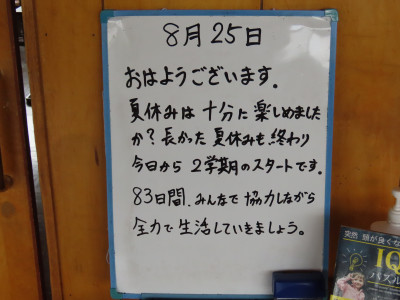 8月25日
おはようございます.
夏休みは十分に楽しめました
か?長かった夏休みも終わり
今日から2学期のスタートです.
83日間.みんなで協力しながら
全力で生活していきましょう。
突然 頭が良くな
IQ
パズル